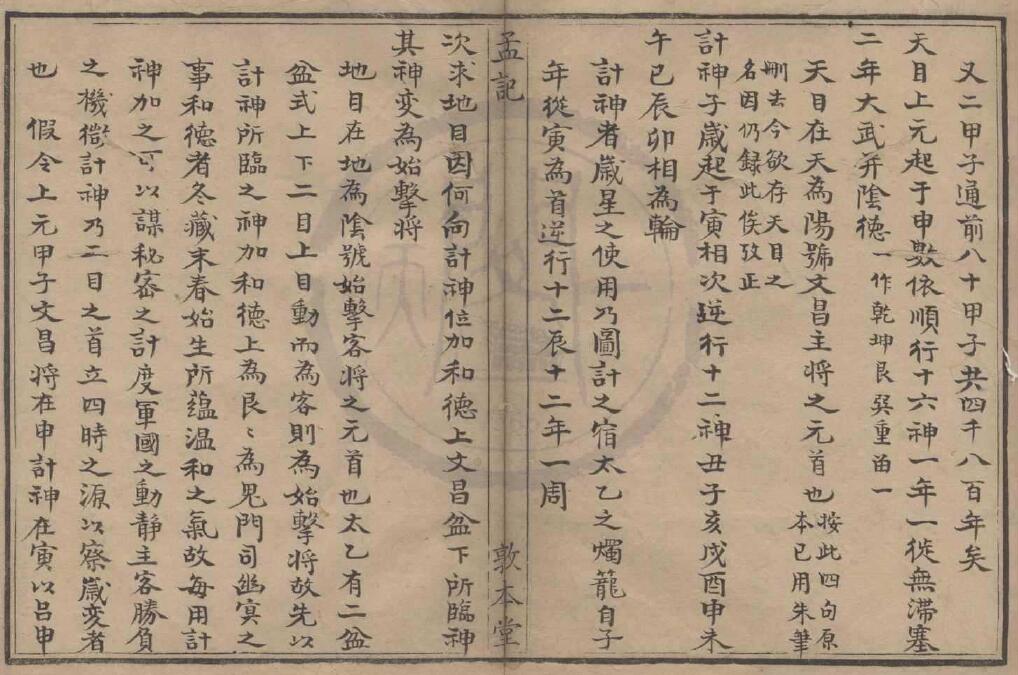 又二甲子通前八十甲子共四千八百年矣
天目上元起于申數依順行十六神一年一徙無滯塞
二年大武并陰德一作乾坤艮巽重畄一
天目在天為陽號文昌主將之元首也按此四句原
本已用朱筆
刪去今欲存天目之
名因仍録此俟攷正
計神子歲起于寅相次逆行十二神丑子亥戌酉申未
午巳辰卯相為輪
計神者歲星之使用乃圖計之宿太乙之燭籠自子
年從寅為首逆行十二辰十二年一周
孟記
敦本堂
次求地目因何向計神位加和德上文昌盆下所臨神
其神变為始擊将
地目在地為陰號始擊客将之元首也太乙有二盆
盆式上下二目上目動而為客則為始擊将故先以
計神所臨之神加和德上為艮〻為鬼門司幽冥之
事和德者冬藏末春始生所蕴温和之氣故每用計
神加之可以謀秘密之計度軍國之動静主客勝負
之機衛計神乃二目之首立四時之源以察歲变者
也 假令上元甲子文昌将在申計神在寅以吕申